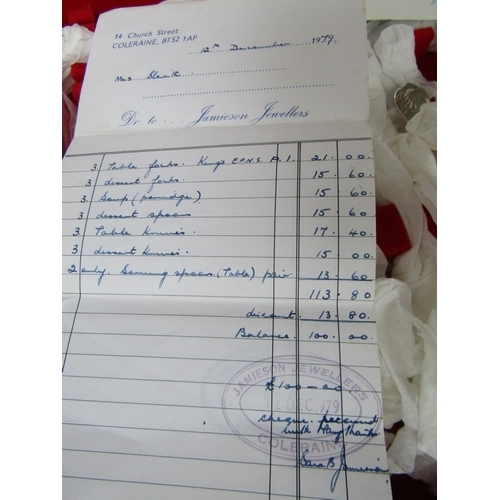 14 Church Street
COLERAINE, BT52 1AP
2nd December 1979
Mrs
Dr. to Jamieson Jewellers
3 Table forks. Kings E.P.N.S. A.1. 21.00
3 dessert forks. 15.60
3 Soup (porridge) 15.60
3 dessert spoons 15.60
3 Table Knives. 17.40
3 dessert Knives. 15.00
2 only. Serving spoons (Table) pair 13.60
113.80
discount. 13.80
Balance. 100.00
JAMIESON JEWELLERS
£100-00
DEC 1979
cheque received
with Many Thanks
COLERAINE
Sara B Jamieson